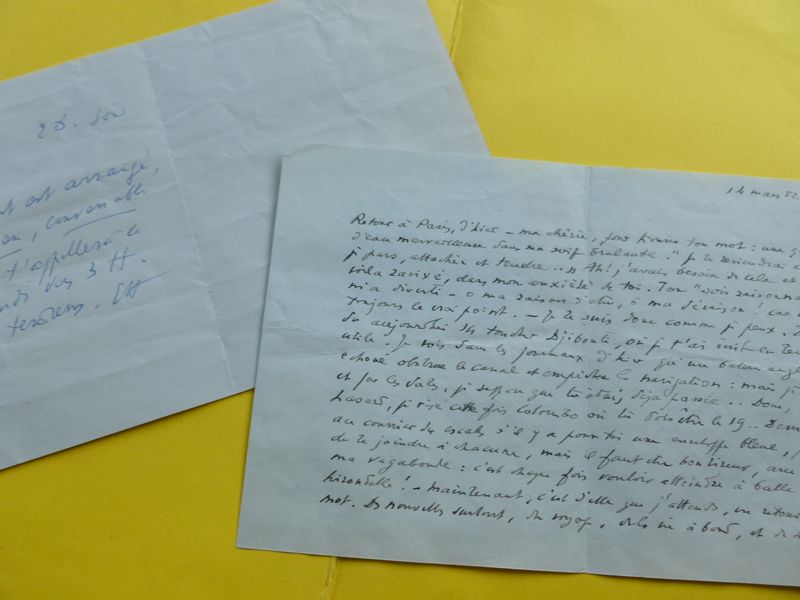 28. Soir
est arrangé,
convenable
t'appellerai le
vos 3 H.
14 mars 52
Retour à Paris, d'hier – ma chérie, pour trouver ton mot : une g
d'eau merveilleuse dans ma soif brûlante. "Je te reviendrai
je pars, attachée et tendre.. » Ah! j'avais besoin de cela et
voilà dans mon anxiété de toi. Ton "sois raisonna
m'a diverti – o ma raison d'être, ô ma déraison! car
toujours le vrai point. – Je te suis donc comme je peux.
Du aujourdhui 14 toucher Djibouti, où je t'ai écrit en
utile. Je vois dans les journaux d'hier qu'un bateau angl
échoué obstrue le canal et empêche la navigation : mais je
et par les dates, je suppose que tu étais déjà passée .. Donc,
hasard, je vise cette fois Colombo où tu dois être le 19 ..
au courrier des escales s'il y a pour toi une enveloppe bleue,
de te joindre à chacune, mais il faut être bon tireur, avec
ma vagabonde : c'est chaque fois vouloir atteindre à balle
hirondelle! – Maintenant, c'est d'elle que j'attends, en retour
mot. Des nouvelles surtout, du voyage, de la vie à bord, et de